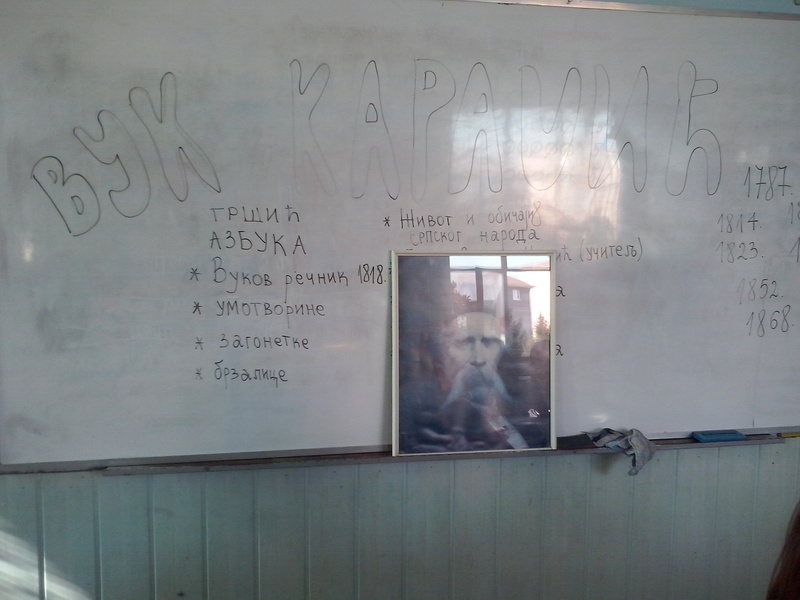 ВУК КАРАЏИЋ
ТРШИЋ
АЗБУКА
* Вуков речник 1818.
* умотворине
* загонетке
* брзалице
* Живот и обичаји
српског народа
(учитељ)
1787.
1814.
1823.
1852.
1868.